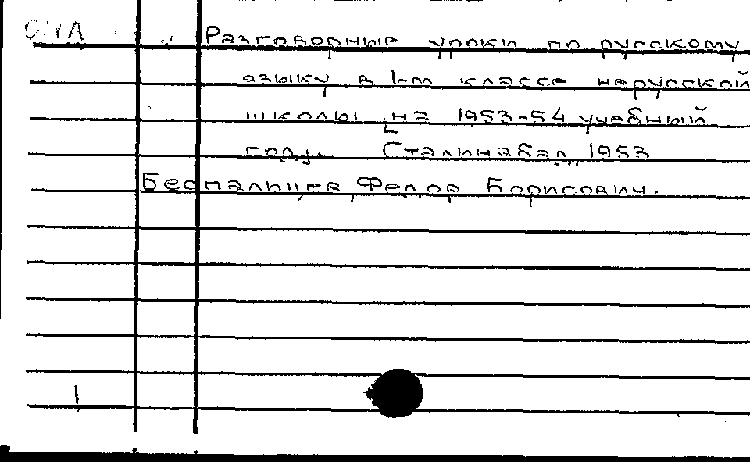 Разговорные уроки по русскому
языку в 1-м классе нерусской
школы на 1953-54 учебный
год. Сталинабад, 1953
Беспальцев Федор Борисович.
1